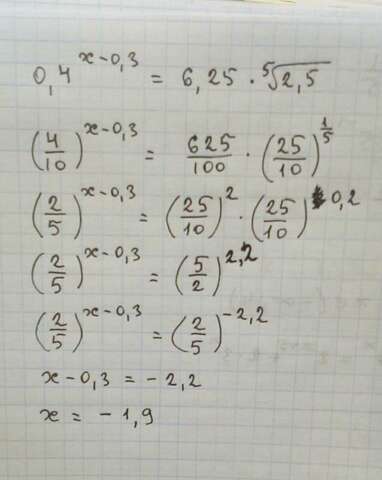 0,4^(x-0,3) = 6,25 · ⁵√2,5
(4/10)^(x-0,3) = 625/100 · (25/10)^(1/5)
(2/5)^(x-0,3) = (25/10)^2 · (25/10)^0,2
(2/5)^(x-0,3) = (5/2)^2,2
(2/5)^(x-0,3) = (2/5)^-2,2
x-0,3 = -2,2
x = -1,9